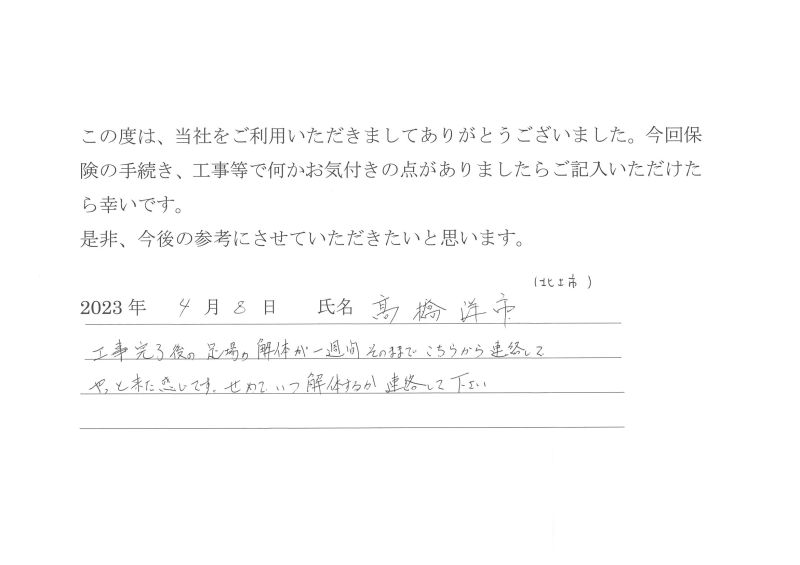 この度は、当社をご利用いただきましてありがとうございました。今回保
険の手続き、工事等で何かお気付きの点がありましたらご記入いただけた
ら幸いです。
是非、今後の参考にさせていただきたいと思います。
(北上市)
2023年 4月8日 氏名 高橋 洋市
工事完了後の足場の解体が一週間そのままでこちらから連絡して
やっと来た感じです。せめていつ解体するか連絡して下さい